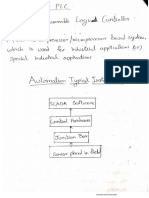 PLC
Logical Controller
processor/microprocessor based system,
which is used for industrial applications (or)
special industrial applications
Automation Typical
SCADA Software
Control Hardware
Junction Box
Sensor placed in field